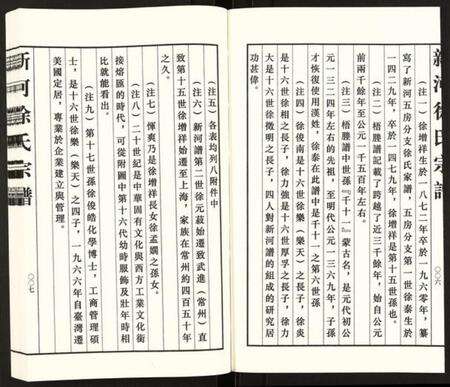 新河徐氏宗譜
〇〇六
(注一)徐增祥生於一八七二年卒於一九六零年,纂
寫了新河五房分支徐氏家譜,五房分支第一世徐泰生於
一四二九年,卒於一四七九年,徐增祥是第十五世孫也。
(注二)梧塍譜記載了跨越了近三千餘年,始自公元
前兩千餘年至公元一千五百年左右。
(注三)梧塍譜中世孫『千十一』蒙古名,是元代初公
元一三二四年左右的先祖,至明代公元一三六九年,子孫
才恢復使用漢姓,徐泰在此譜中是千十一之第六世孫
(注四)徐俊南是十六世徐樂(樂天)之長子,徐炎
是十六世徐相之長子,徐力強是十六世厚孚之長子,徐力
大是十六世徐微明之長子,四人對新河譜的組成的研究居
功甚偉。
(注五)各表均列八附件中
(注六)新河譜第二世徐元菽始遷致武進(常州)直
致第十五世徐增祥始遷至上海,家族在常州約四百五十年
之久。
(注七)惲爽乃是徐增祥長女徐孟嫻之孫女。
(注八)二十世紀是中華固有文化與西方工業文化銜
接熔匯的時代,可從附圖中第十六代幼時服飾及壯年時相
比就能看出。
(注九)第十七世孫徐俊皓化學博士,工商管理碩
士,是十六世徐樂(樂天)之四子,一九六六年自臺灣遷
美國定居,專業於企業建立與管理。
新河徐氏宗譜
〇〇七